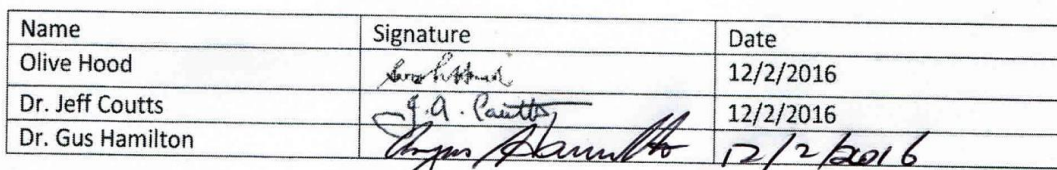 Name Signature Date
Olive Hood 12/2/2016
Dr. Jeff Coutts J.A. Coutts 12/2/2016
Dr. Gus Hamilton Angus Hamilton 12/2/2016